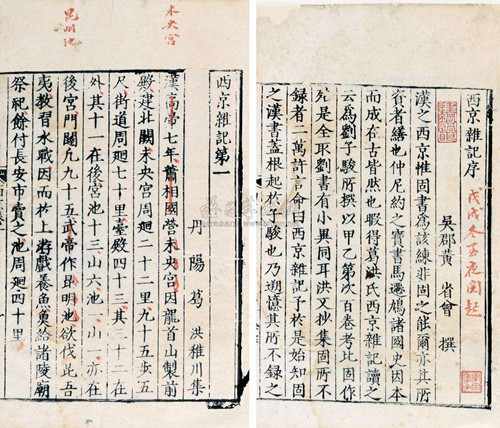 西京雜記序
戊戌冬至夜閱起
吳郡黃省曾撰
漢之西京惟固書為該練非固之能爾亦其所
資者繕也仲尼約之寶書馬遷鳩諸國史因本
而成在古皆然也暇得葛洪氏西京雜記讀之
云為劉子駿所撰以甲乙第次百卷考比固作
殆是全取劉書有小異同耳洪又抄集固所不
錄者二萬許言命曰西京雜記予於是始知固
之漢書蓋根起於子駿也乃遡憶其所不錄之
未央宮
昆明池
西京雜記第一
丹陽葛洪稚川集
漢高帝七年蕭相國營未央宮因龍首山製前
殿建北闕未央宮周廻二十二里九十五步五
尺街道周廻七十里臺殿四十三其三十二在
外其十一在後宮池十三山六池一山一亦在
後宮門闥凡九十五武帝作昆明池欲伐昆吾
夷教習水戰因而於上遊戲養魚魚給諸陵廟
祭祀餘付長安市賣之池周廻四十里